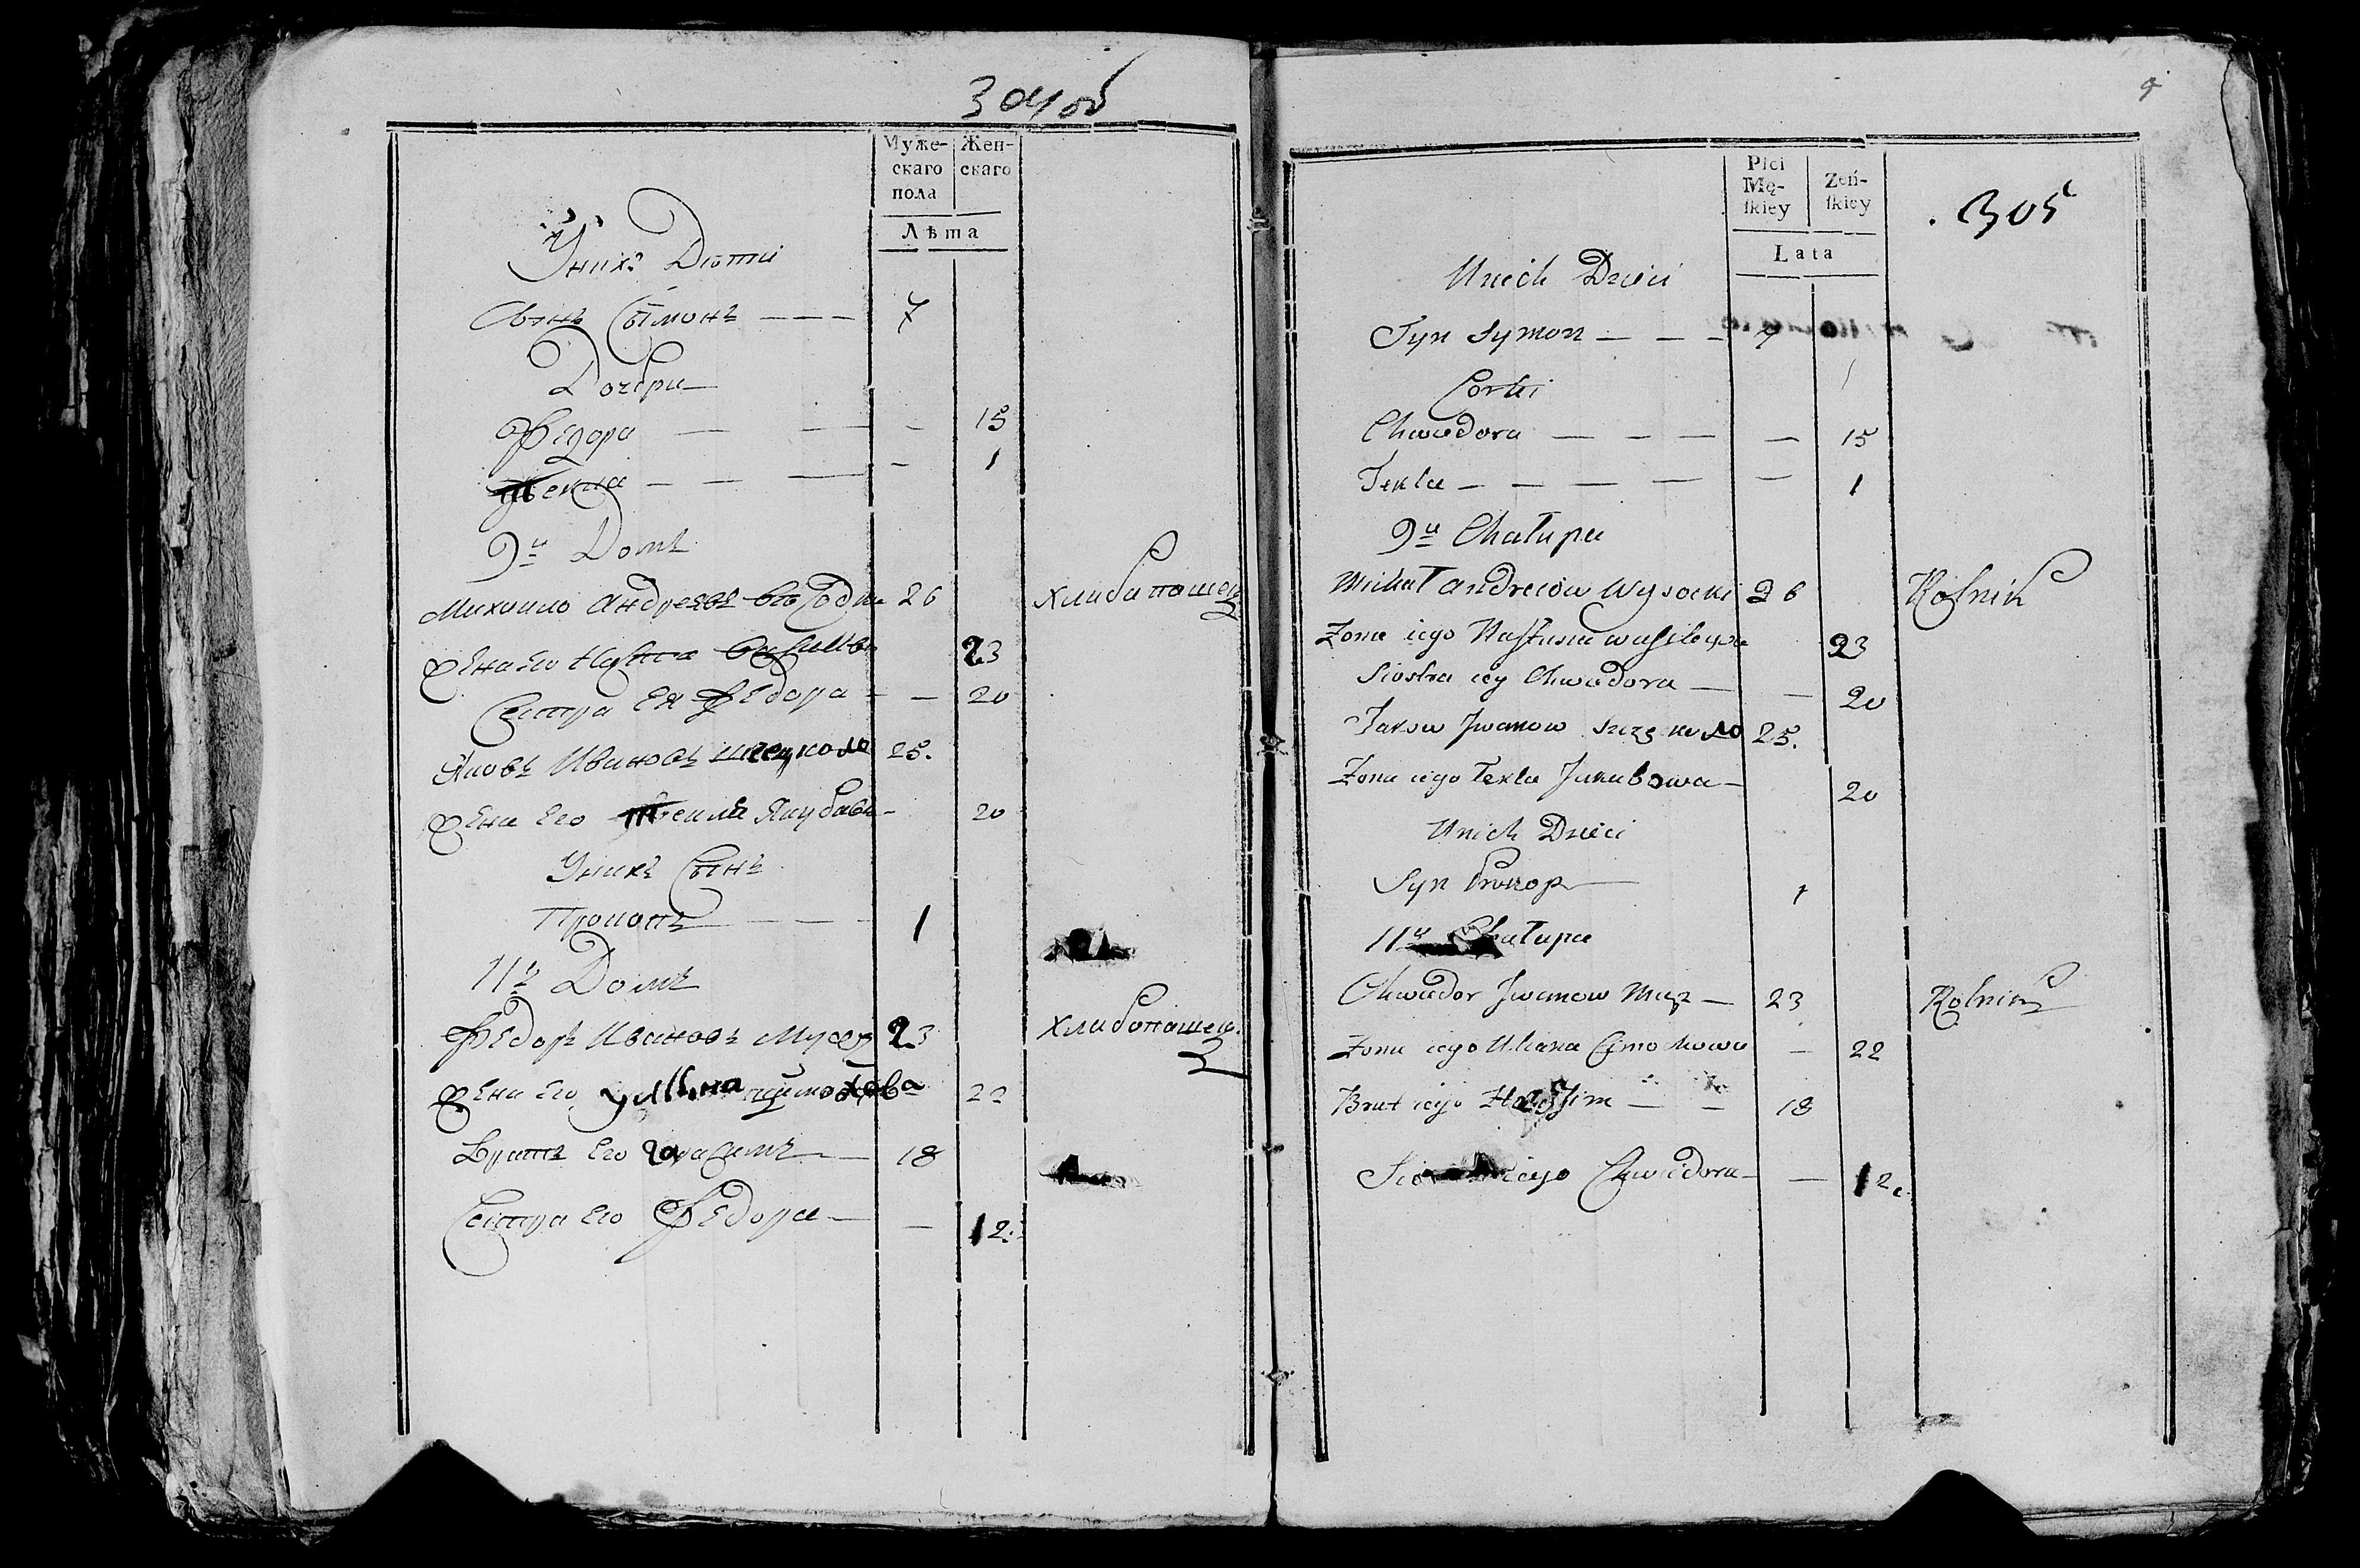 304об
Муже-
скаго
пола
Жен-
скаго
Лѣта
Уних Дѣти
Сынъ Сымонъ — — — 7
Дочери
Федора — — — 15
Текла — — — 1
9й Домъ
Михаило Андреевъ 26 хлибапашец
жена его 23
Сестра Ея Федора — — 20
Яковъ Ивановъ 25.
жена Его Текла Якубава — 20
Уних Сынъ
Прокопъ — — — 1
11й Домъ
Федоръ Ивановъ 23 хлибопашец.
жена Его Улляна цимохова 22
Братъ Его Гарасимъ — 18
Сестра Его Федора — — 12:
9
Plci
Mę-
ſkiey
Zeń-
ſkiey
Lata
305
Unich Dzieci
Syn Symon — — — 7
Corki
Chwedora — — — — 15
Tekla — — — — — 1
9a Chałupa
Michał Andreiow Wysocki 26 Rolnik
Zona iego Naſtusia waſilowa 23
Siostra iey Chwedora — — 20
Jakow Jwanow 25.
Zona iego Tekla Jakubowa — 20
Unich Dzieci
Syn Prokop — 1
11a Chałupa
Chwedor Jwanow — 23 Rolnik
Zona iego Uliana Cimochowa — 22
Brat iego — — 18
iego Chwedora — — 12.